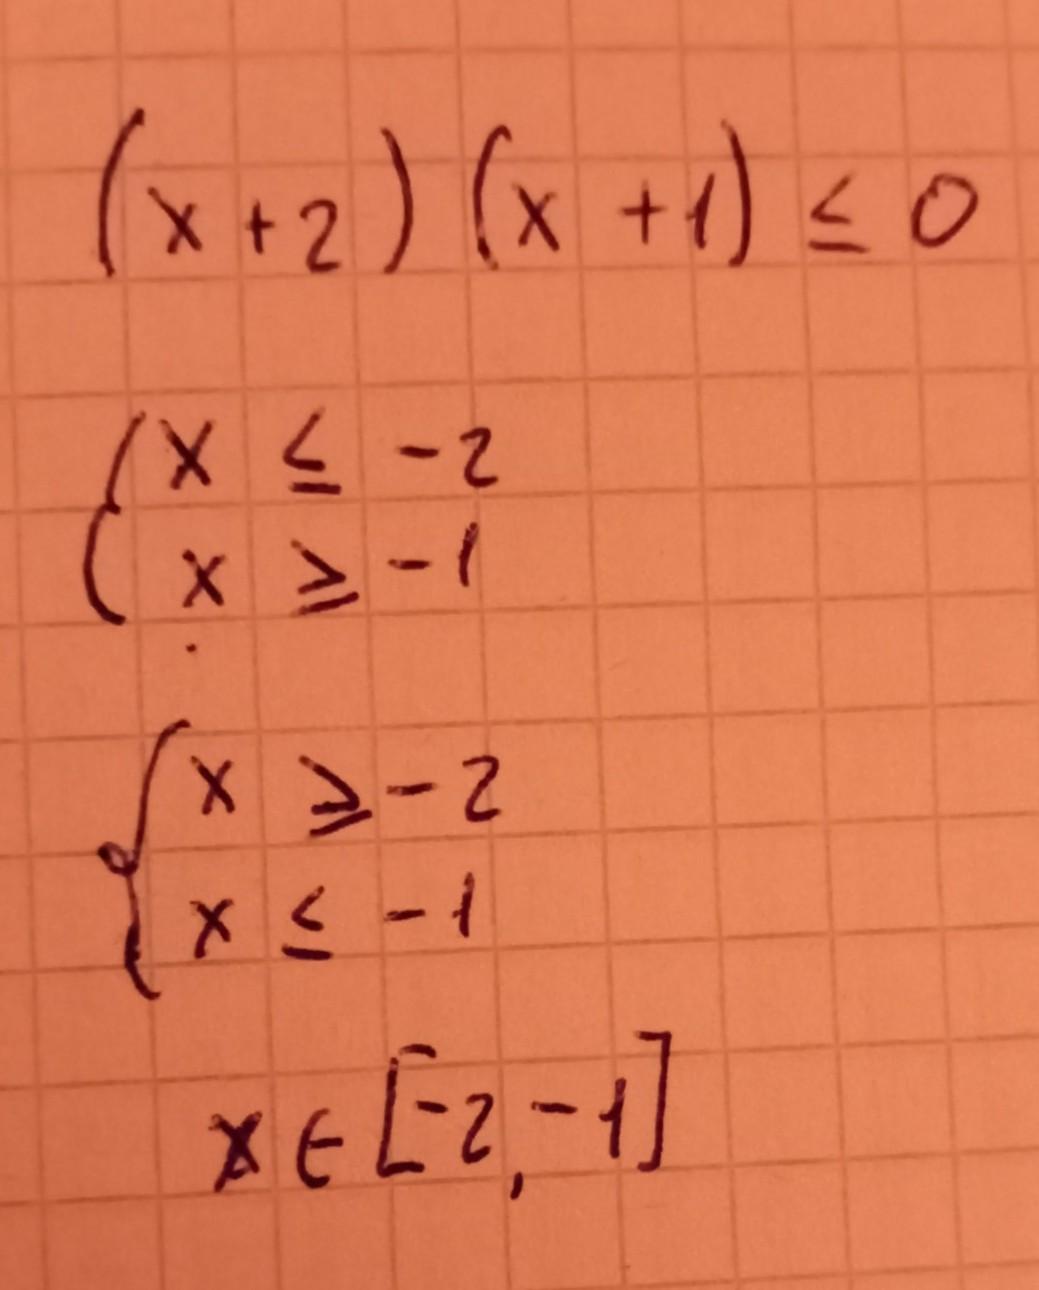 (x+2)(x+1) ≤ 0
{x ≤ -2
x ≥ -1
{x ≥ -2
x ≤ -1
x ∈ [-2, -1]